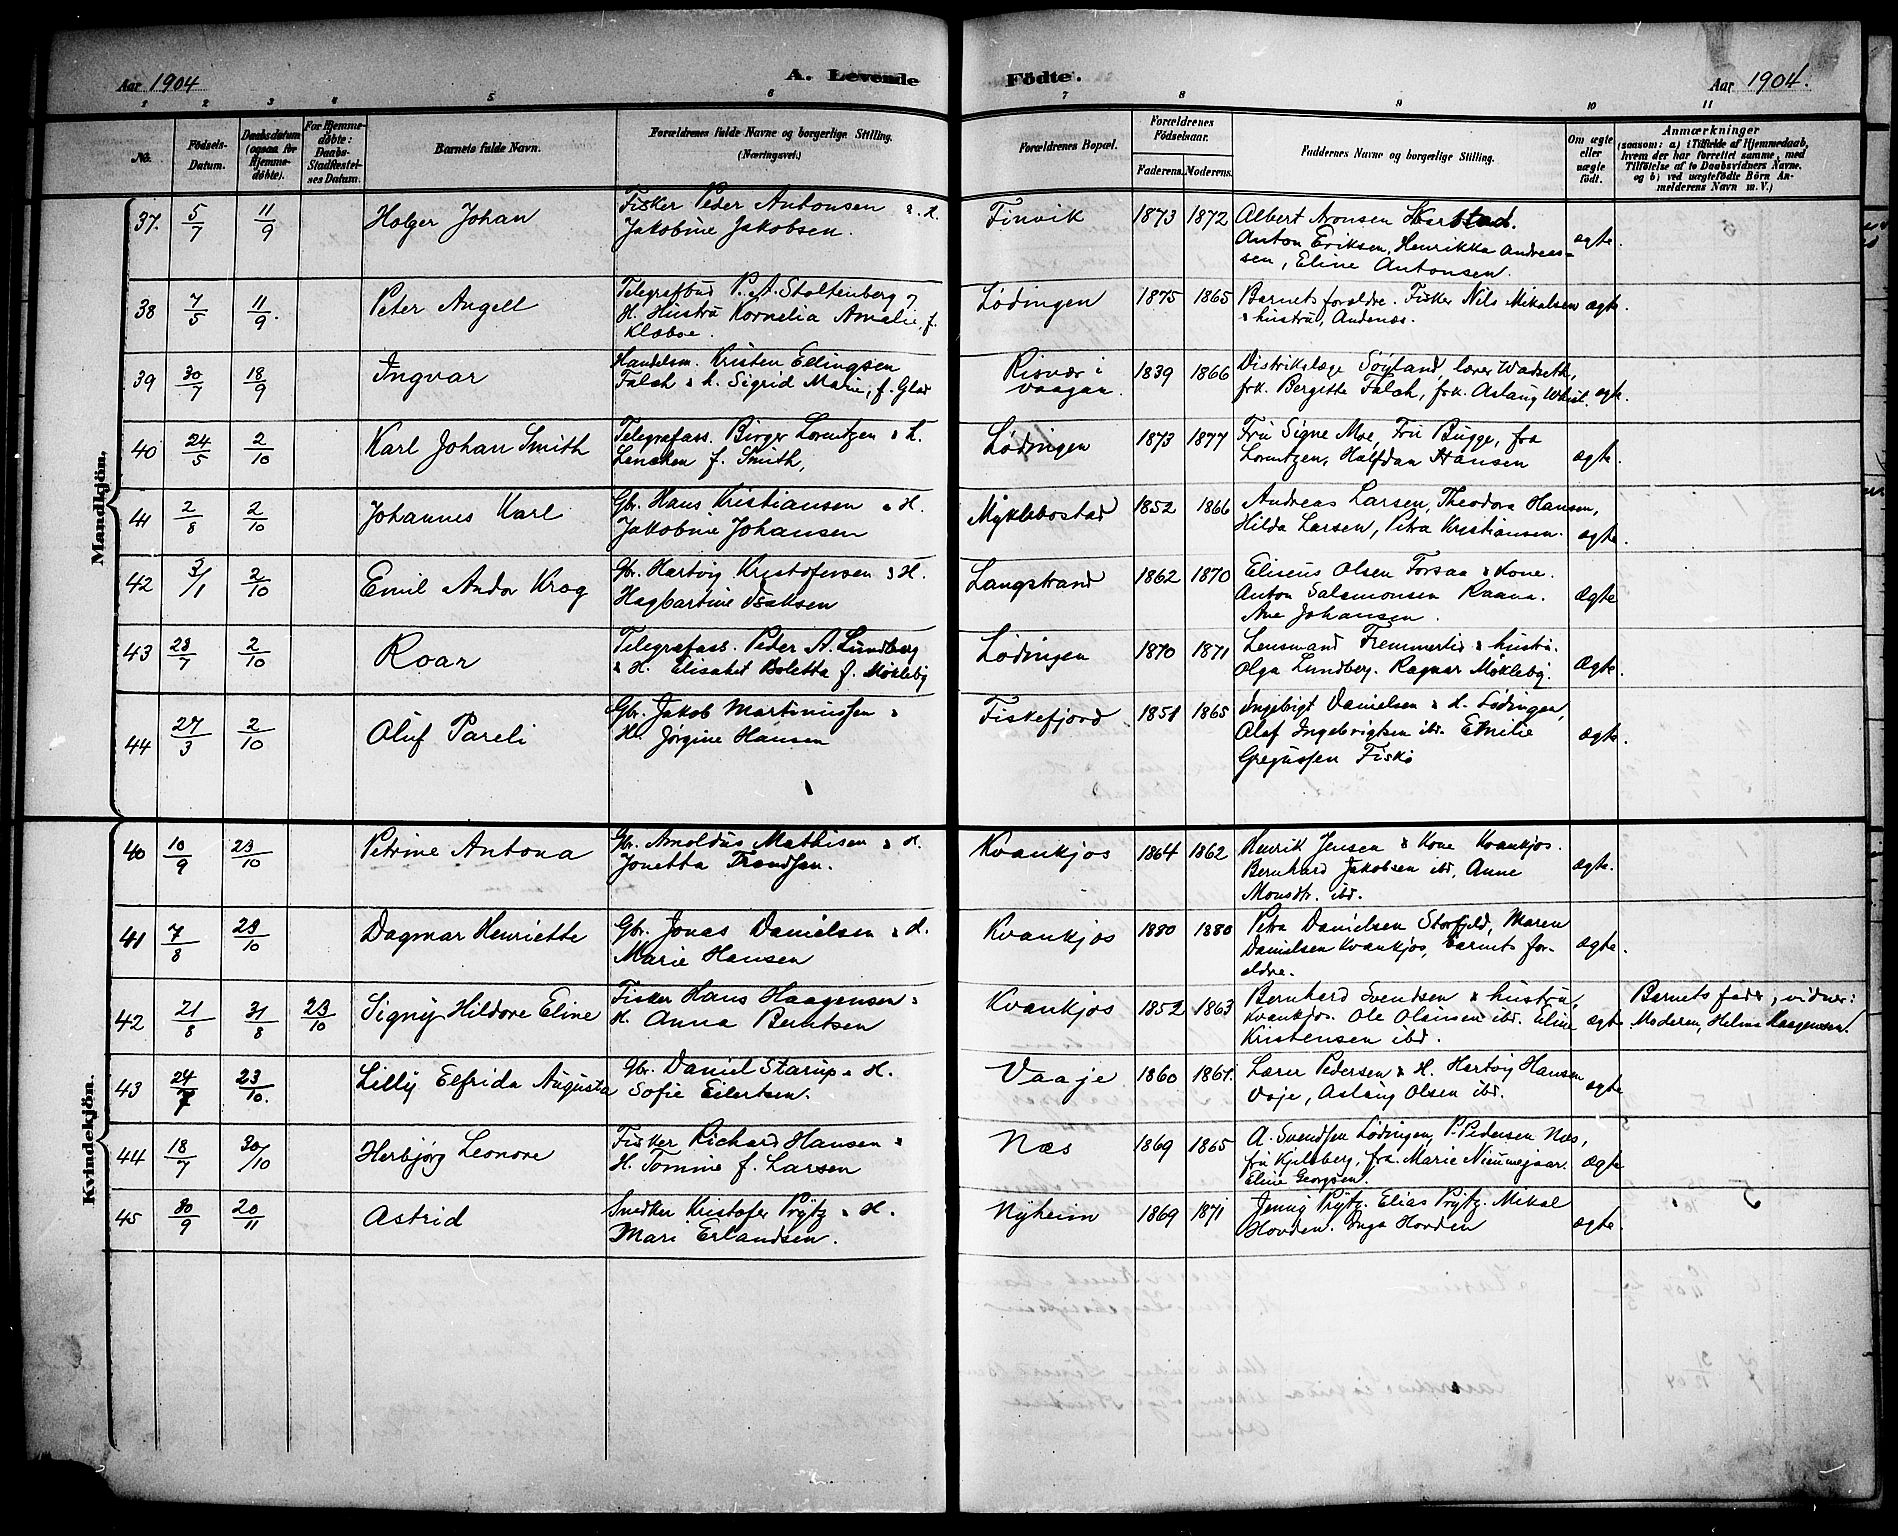 Aar 1904
A. Levende
Födte.
Aar 1904.
1 2 3 4 5 6 7 8 9 10 11
No.
Födsels-Datum.
Daabsdatum (ogsaa for Hjemme-døbte).
For Hjemme-døbte: Daabs-Stadfæstel-ses Datum.
Barnets fulde Navn.
Forældrenes fulde Navne og borgerlige Stilling. (Næringsvei.)
Forældrenes Bopæl.
Forældrenes Födselsaar.
Faderens. Moderens.
Faddernes Navne og borgerlige Stilling.
Om ægte eller uægte født.
Anmærkninger
(saasom: a) i Tilfælde af Hjemmedaab, hvem der har forrettet samme, med Tilföielse af to Daabsvidners Navne, og b) ved uægtefödte Börn Anmelderens Navn m. V.)
Mandkjön.
37. 5/7 11/9 Holger Johan
Fisker Peder Antonsen & H.
Jakobine Jakobsen.
Finvik 1873 1872
Albert Aronsen Skarstad.
Anton Eriksen, Henrikka Andreas-
sen, Eline Antonsen.
ægte.
38 7/5 11/9. Peter Angell
Telegrafbud P. A. Stoltenberg &
H. Hustru Kornelia Amalie, f.
Klæboe.
Lødingen 1875 1865
Barnets forældre. Fisker Nils Mikalsen
& hustru, Andenæs.
ægte.
39 30/7 18/9 Ingvar
Handelsm. Kristen Ellingsen
Falch & h. Sigrid Marie, f. Glad
Risvær i
vaagan. 1839 1866
Distriktslæge Søyland, lærer Wadseth,
frk. Bergitte Falch, frk. Aslaug
ægte.
40 24/5 2/10 Karl Johan Smith
Telegrafass. Birger Lorentzen & h.
Lenchen f. Smith,
Lødingen 1873 1877
Fru Signe Moe, Fru Bugge, fra
Lorentzen, Halfdan Hansen
ægte.
41 2/8 2/10 Johannes Karl
Gbr. Hans Kristiansen & H.
Jakobine Johansen
Myklebostad 1852 1866
Andreas Larsen, Theodora Hansen,
Hilda Larsen, Petra Kristiansen.
ægte.
42 3/1 2/10 Emil Andor Krog
Gbr. Hartvig Kristofersen & H.
Hagbartine Isaksen
Langstrand 1862 1870
Eliseus Olsen Forsaa & Kone.
Anton Salamonsen Raana.
Ane Johansen.
Ægte
43 23/7 2/10 Roar
Telegrafass. Peder A. Lundberg
& H. Elisabet Boletta f. Mökleby
Lødingen 1870 1871
Lensmand Fremmerlid & hustru.
Olga Lundberg. Ragnar Mökleby.
Ægte.
44 27/3 2/10 Oluf Pareli
Gbr. Jakob Martinussen &
H. Jørgine Hansen
Fiskefjord. 1851 1865
Ingebrigt Danielsen & h. Lødingen,
Olaf Ingebrigtsen ibd. Emelie
Gregussen Fiskö
Ægte.
Kvindekjön.
40 10/9 23/10 Petrine Antona
Gbr. Arnoldus Mathisen & H.
Jonetta Trondsen.
Kvankjos 1864 1862
Henrik Jensen & Kone Kvankjos.
Bernhard Jakobsen ibd, Anne
Monsdtr. ibd.
Ægte.
41 7/8 23/10 Dagmar Henriette
Gbr. Jonas Danielsen & H.
Marie Hansen
Kvankjos 1880 1880
Petra Danielsen Storfjeld, Maren
Danielsen Kvankjos, barnets for-
ældre.
Ægte.
42 21/8 31/8 23/10 Signy Hildore Eline
Fisker Hans Haagensen &
H. Anna Berntsen
Kvankjos 1852 1863
Bernhard Svendsen & hustru,
Kvankjos. Ole Olsinsen ibd. Eline
Kristensen ibd.
ægte
Barnets fader, vidner:
Moderen, Helma Haagensen.
43 24/7 23/10. Lilly Elfrida Augusta
Gbr. Daniel Starup & H.
Sofie Eilertsen.
Vaaje 1860 1867.
Lærer Pedersen & H. Hartvig Hansen
Vaje, Aslaug Olsen ibd.
ægte
44 18/7 30/10 Herbjørg Leonore
Fisker Richard Hansen &
H. Tomine f. Larsen
Næs 1869 1865
A. Svendsen Lødingen, P. Pedersen Næs,
fru Kjelsberg, fra. Marie Niemmejaar.
Eline Georgsen.
Ægte
45 30/9 20/11 Astrid
Snedker Kristofer Prytz & H.
Mari Erlandsen.
Nyheim 1869 1871
Jenny Prytz. Elias Prytz. Mikal
Hovden. Inga Hovden
ægte.